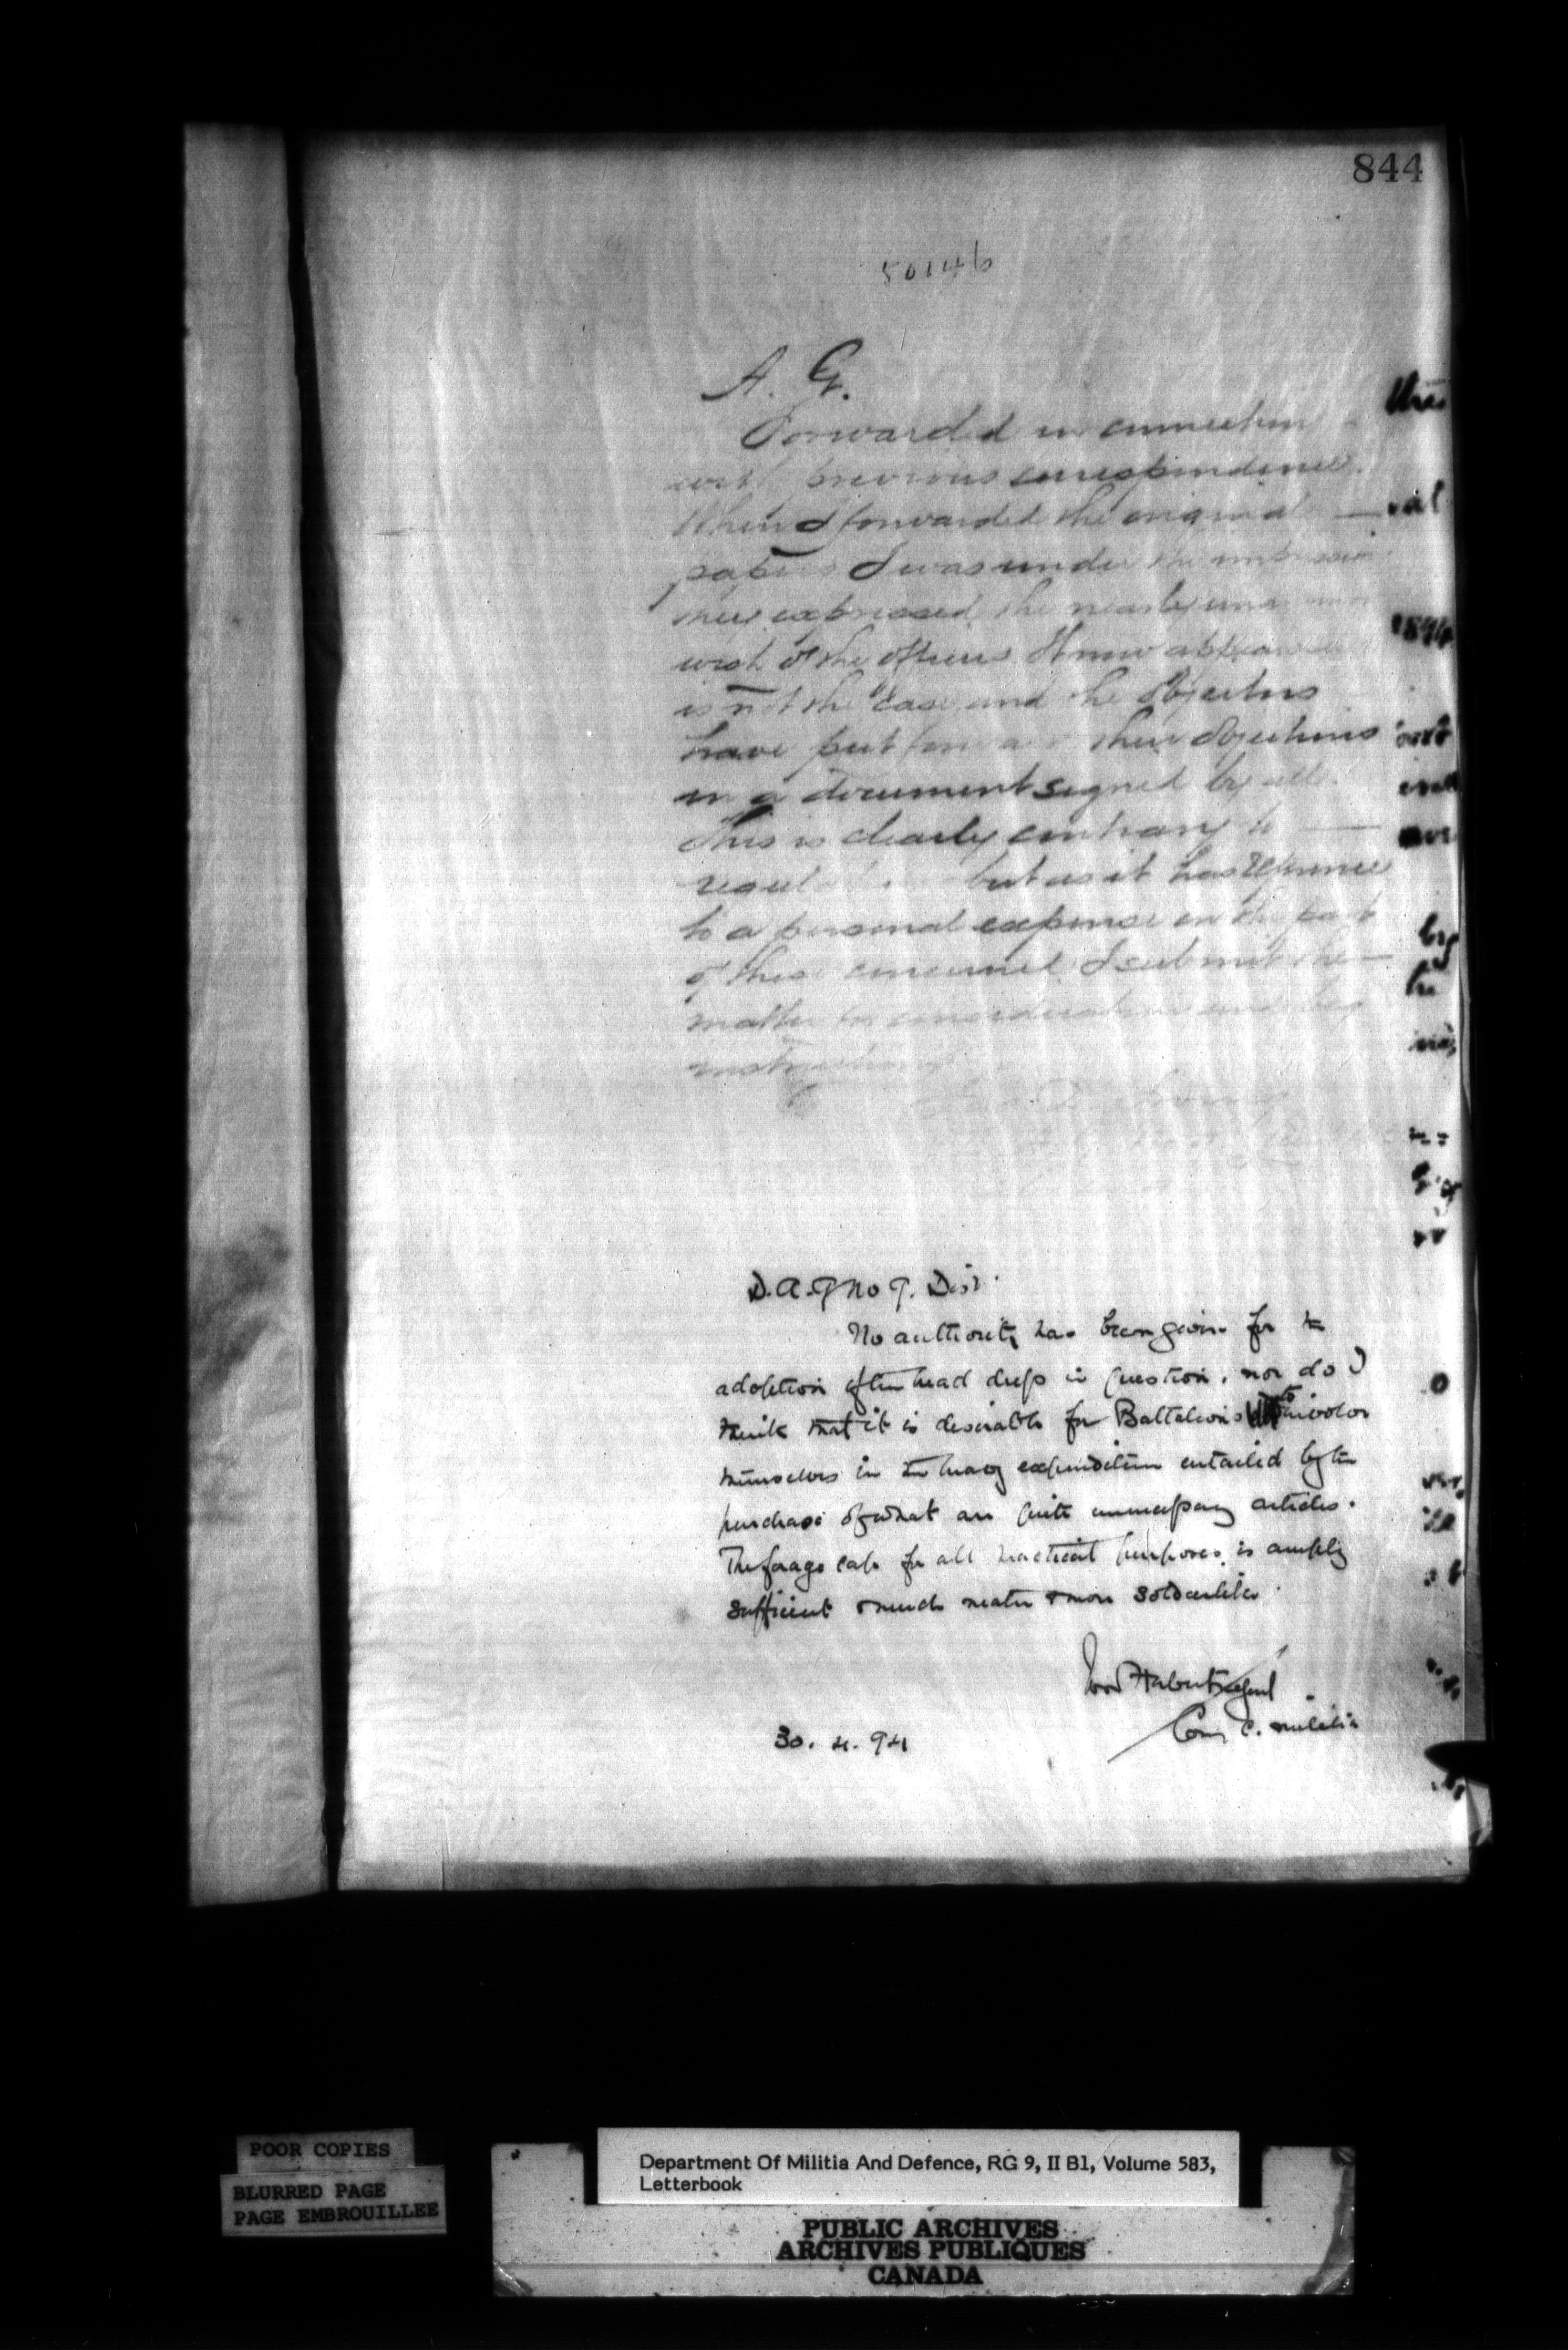 844
50146
A. G.
Forwarded in connection
with previous correspondence.
When I forwarded the original
papers I was under the impression
they expressed the nearly unanimous
wish of the officers. It now appears
is not the case, and the objectors
have put forward their objections
in a document signed by all.
This is clearly contrary to
regulations but as it has reference
to a personal expense on the part
of those concerned I submit the
matter for consideration and beg
instructions
D.A.G No 7. Dist.
No authority has been given for the
adoption of the head dress in question, nor do I
think that it is desirable for Battalions to involve
themselves in the heavy expenditure entailed by the
purchase of what are quite unnecessary articles.
The forage cap for all practical purposes is amply
sufficient & much neater & more soldierlike.
Ivor Herbert
Com C. Militia
30. 4. 94
POOR COPIES
BLURRED PAGE
PAGE EMBROUILLEE
Department Of Militia And Defence, RG 9, II B1, Volume 583,
Letterbook
PUBLIC ARCHIVES
ARCHIVES PUBLIQUES
CANADA